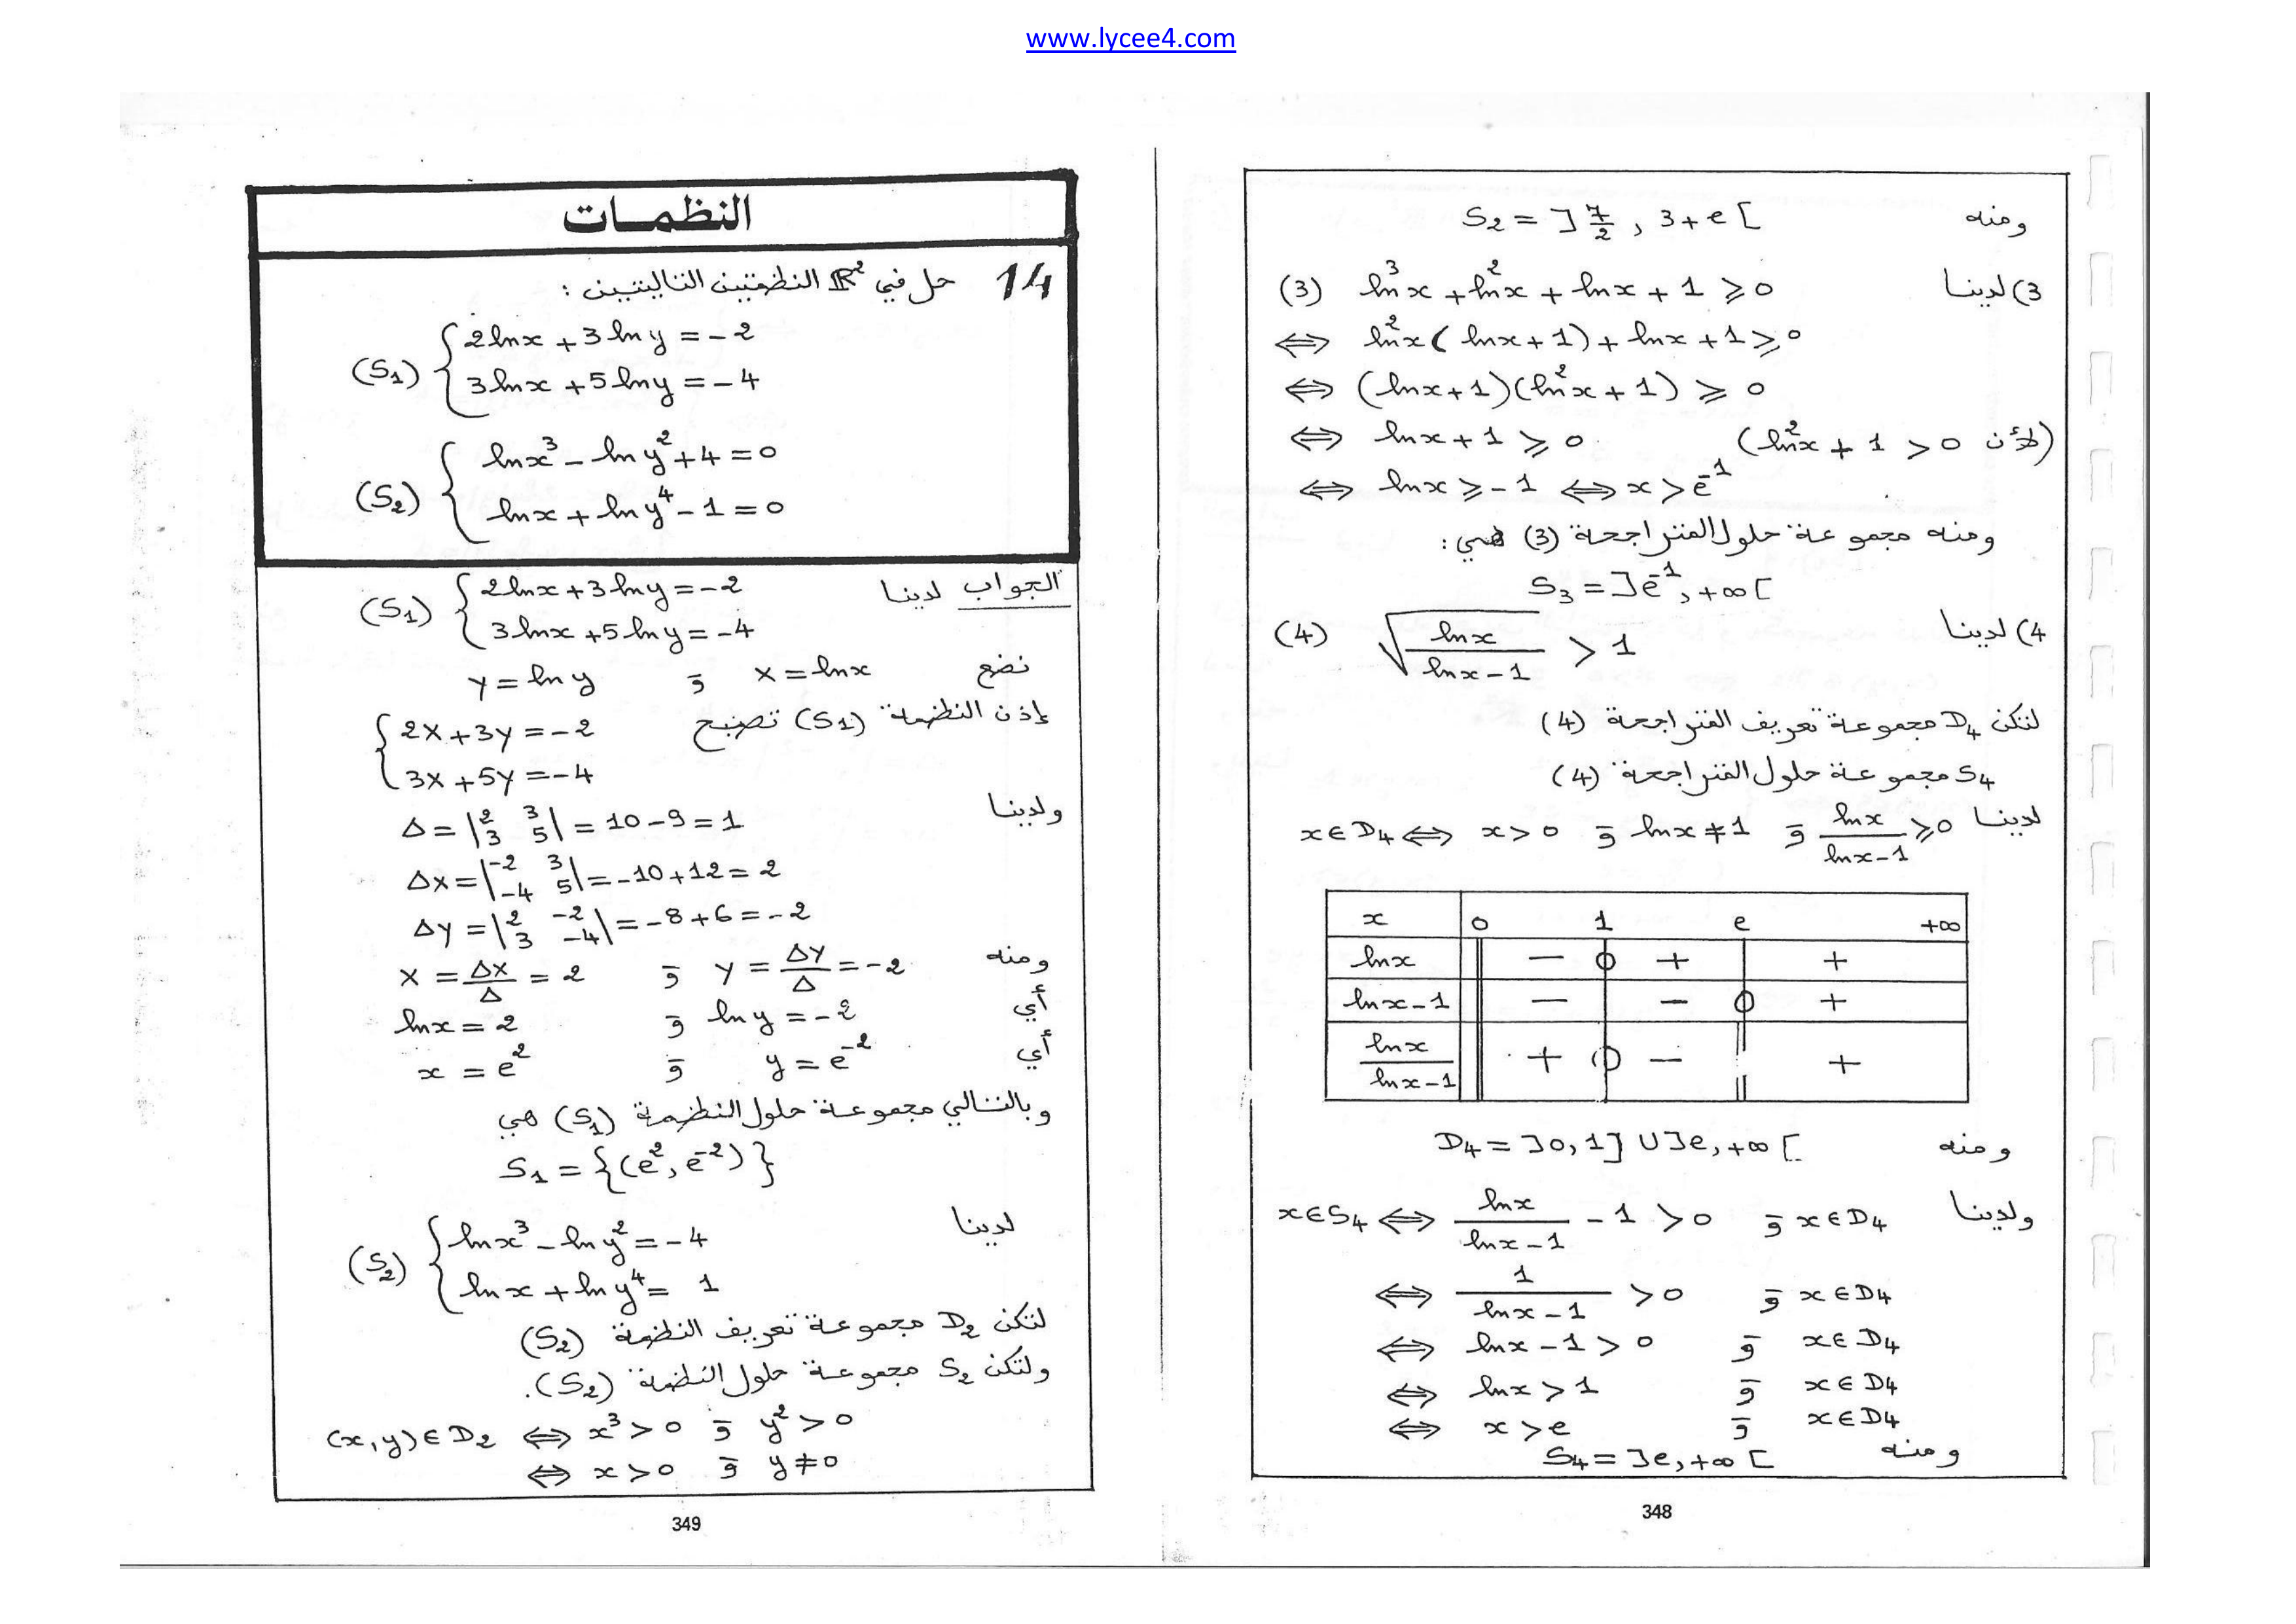 www.lycee4.com
ومنه S₂ = ]7/2 , 3+e[
3) لدينا ln³x + ln²x + lnx + 1 ⩾ 0 (3)
⇔ ln²x( lnx+1) + lnx + 1 ⩾ 0
⇔ (lnx+1)(ln²x + 1) ⩾ 0
⇔ lnx + 1 ⩾ 0 (لأن ln²x + 1 > 0)
⇔ lnx ⩾ -1 ⇔ x > e⁻¹
ومنه مجموعة حلول المتراجحة (3) هي:
S₃ = ]e⁻¹, +∞[
4) لدينا √(lnx/(lnx-1)) > 1 (4)
لتكن D₄ مجموعة تعريف المتراجحة (4)
S₄ مجموعة حلول المتراجحة (4)
لدينا x∈D₄ ⇔ x>0 و lnx ≠ 1 و lnx/(lnx-1) ⩾ 0
x 0 1 e +∞
lnx − 0 + +
lnx-1 − − 0 +
lnx/(lnx-1) + 0 − +
ومنه D₄ = ]0,1] ∪ ]e,+∞[
ولدينا x∈S₄ ⇔ lnx/(lnx-1) - 1 > 0 و x∈D₄
⇔ 1/(lnx-1) > 0 و x∈D₄
⇔ lnx-1 > 0 و x∈D₄
⇔ lnx > 1 و x∈D₄
⇔ x > e و x∈D₄
ومنه S₄ = ]e,+∞[
348
النظمـات
14 حل في ℝ² النظمتين التاليتين :
(S₁) { 2lnx + 3lny = -2
3lnx + 5lny = -4
(S₂) { lnx³ - lny² + 4 = 0
lnx + lny⁴ - 1 = 0
الجواب لدينا (S₁) { 2lnx + 3lny = -2
3lnx + 5lny = -4
نضع X = lnx و Y = lny
إذن النظمة (S₁) تصبح { 2X + 3Y = -2
3X + 5Y = -4
ولدينا Δ = |2 3 ; 3 5| = 10-9 = 1
ΔX = |-2 3 ; -4 5| = -10+12 = 2
ΔY = |2 -2 ; 3 -4| = -8+6 = -2
ومنه X = ΔX/Δ = 2 و Y = ΔY/Δ = -2
أي lnx = 2 و lny = -2
أي x = e² و y = e⁻²
وبالتالي مجموعة حلول النظمة (S₁) هي
S₁ = {(e², e⁻²)}
لدينا (S₂) { lnx³ - lny² = -4
lnx + lny⁴ = 1
لتكن D₂ مجموعة تعريف النظمة (S₂)
ولتكن S₂ مجموعة حلول النظمة (S₂).
(x,y)∈D₂ ⇔ x³ > 0 و y² > 0
⇔ x > 0 و y ≠ 0
349